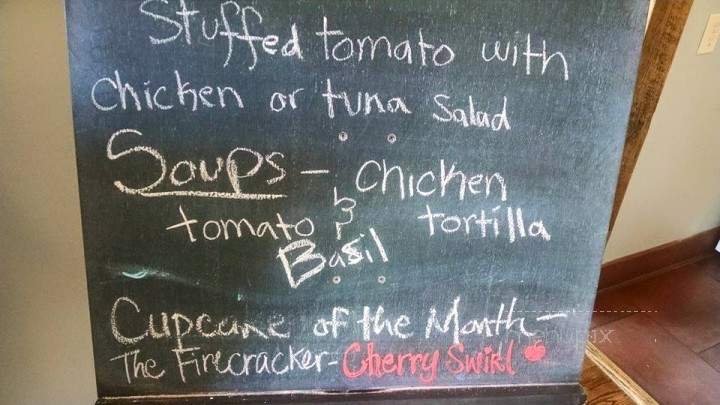 Stuffed tomato with
chicken or tuna Salad
Soups - Chicken
tortilla
tomato &
Basil
Cupcake of the Month -
The Firecracker - Cherry Swirl